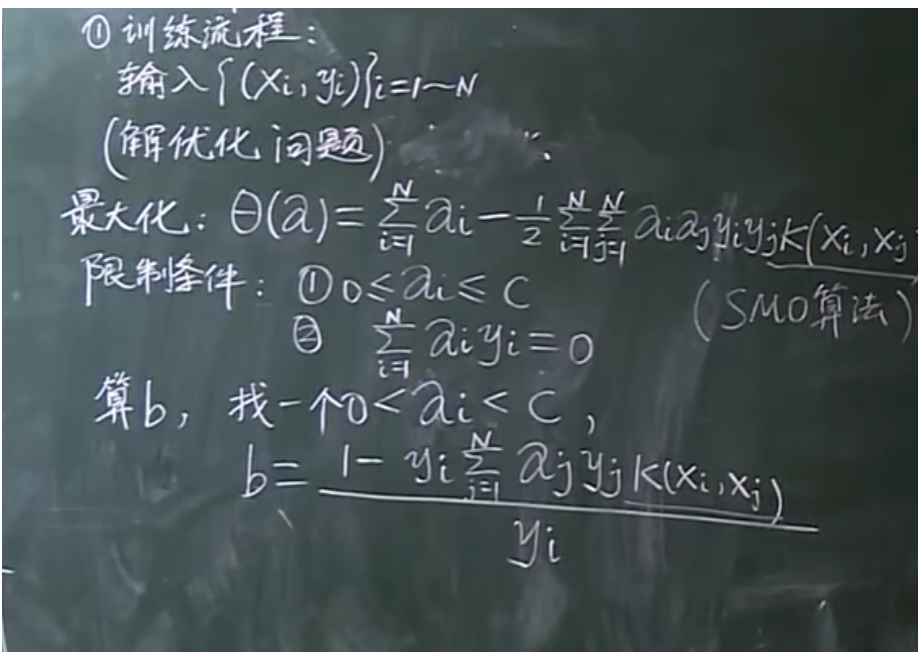 ① 训练流程：
输入{(Xi, yi)}i=1~N
(解优化问题)
最大化：θ(a)=∑_{i=1}^{N} ai − 1/2 ∑_{i=1}^{N} ∑_{j=1}^{N} aiajyiyjK(Xi, Xj
限制条件：① 0≤ai≤C
(SMO算法)
② ∑_{i=1}^{N} aiyi=0
算b，找一个0<ai<C，
b= (1− yi ∑_{j=1}^{N} ajyjK(Xi, Xj)) / yi